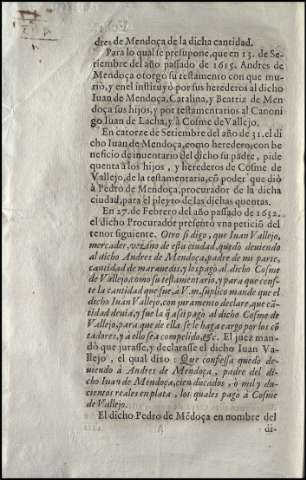 dres de Mendoça de la dicha cantidad.
Para lo qual se presupone, que en 13. de Se-
tiembre del año passado de 1615. Andres de
Mendoça otorgo su testamento con que mu-
rió, y en el instituyó por sus herederos al dicho
Iuan de Mendoça, Catalina, y Beatriz de Men
doça sus hijos, y por testamentarios al Canoni
go Iuan de Lacha, y a Cosme de Vallejo.
En catorze de Setiembre del año de 31. el di
cho Iuan de Mendoça, como heredero, con be
neficio de inuentario del dicho su padre, pide
quenta a los hijos, y herederos de Cosme de
Vallejo, de la testamentaria, cõ poder que diò
à Pedro de Mendoça, procurador de la dicha
ciudad, para el pleyto de las dichas quentas.
En 27. de Febrero del año passado de 1632.
el dicho Procurador presentò vna peticiõ del
tenor siguiente. Otro si digo, que Iuan Vallejo,
mercader, vezino de esta ciudad, quedò deuiendo
al dicho Andres de Mendoça, padre de mi parte,
cantidad de marauedis, y los pagò al dicho Cosme
de Vallejo, como su testamentario, y para que cons-
te la cantidad que fue, à V.m. suplico mande que el
dicho Iuan Vallejo, con juramento declare, que cã-
tidad deuia, y fue la q̃ assi pagò al dicho Cosme de
Vallejo, para que de ella se le haga cargo por los cõ
tadores, y à ello sea compelido, &c. El juez man-
dò que jurasse, y declarasse el dicho Iuan Va-
llejo, el qual dixo: Que confiessa quedò de-
uiendo à Andres de Mendoça, padre del di-
cho Iuan de Mendoça, cien ducados, ò mil y du-
cientos reales en plata, los quales pagò à Cosme
de Vallejo.
El dicho Pedro de Mẽdoça en nombre del
di-